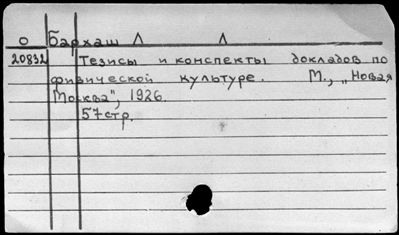 О Бархаш Л Л
20832 Тезисы и конспекты докладов по
физической культуре. М., „Новая
Москва", 1926.
57 стр.